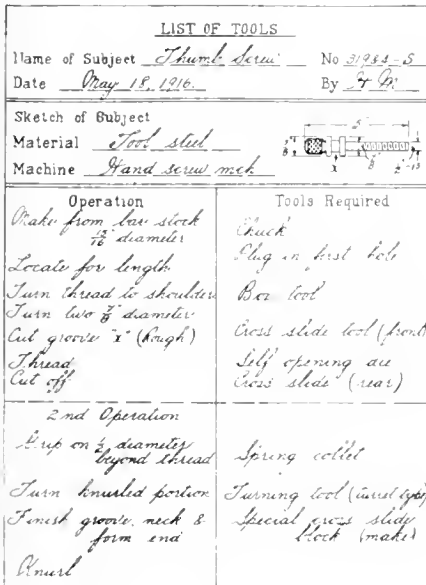 LIST OF TOOLS
Name of Subject Thumb Screw No 31984-S
Date May 18, 1916. By
Sketch of Subject
Material Tool steel
Machine Hand screw mch
Operation Tools Required
Make from bar stock Chuck
15/16" diameter
Locate for length Plug in first hole
Turn thread to shoulder Box tool
Turn two 7/8" diameter
Cut groove "x" (Rough) Cross slide tool (front)
Thread Self opening die
Cut off Cross slide (rear)
2nd Operation
Grip on 1/2 diameter Spring collet
beyond thread
Turn knurled portion Turning tool (turret type)
Finish groove, neck & Special cross slide
form end block (make)
Knurl